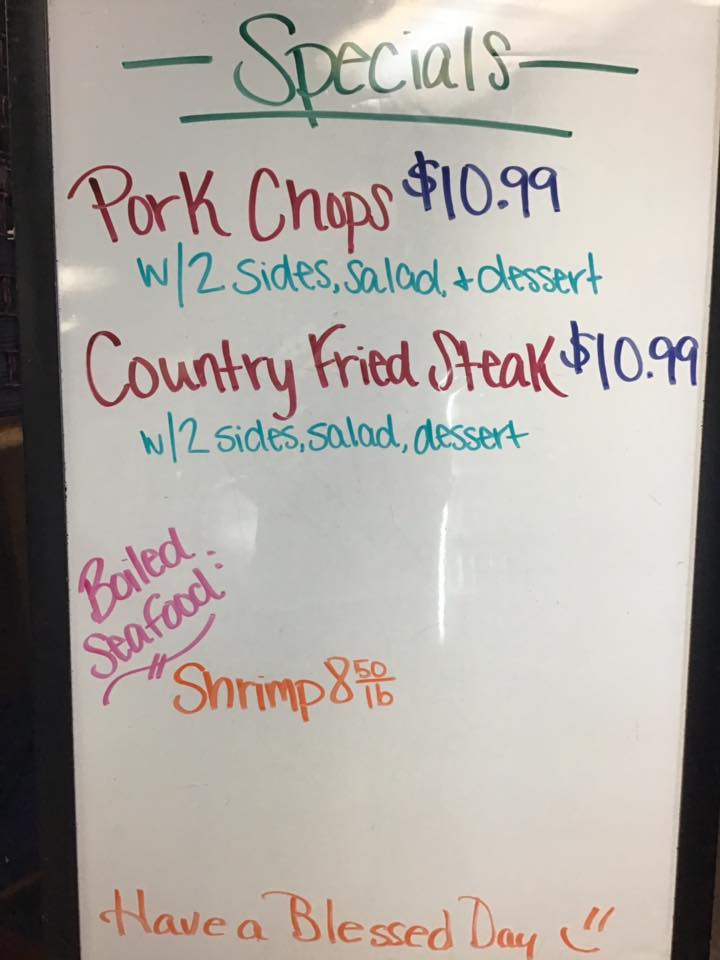 Specials
Pork Chops $10.99
w/2 sides, salad, + dessert
Country Fried Steak $10.99
w/2 sides, salad, dessert
Boiled
Seafood:
Shrimp 8 50/lb
Have a Blessed Day